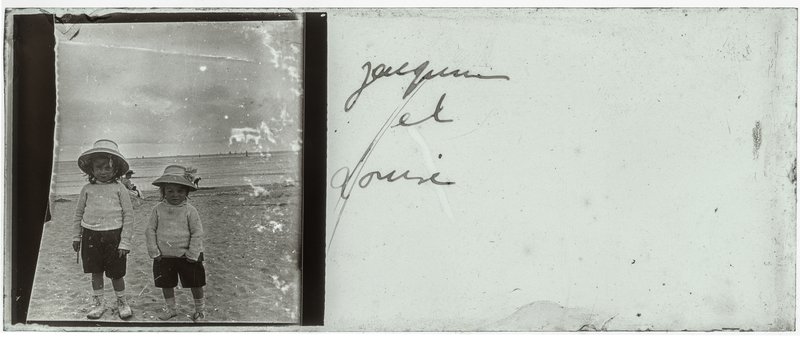 Jacques
et
Louise